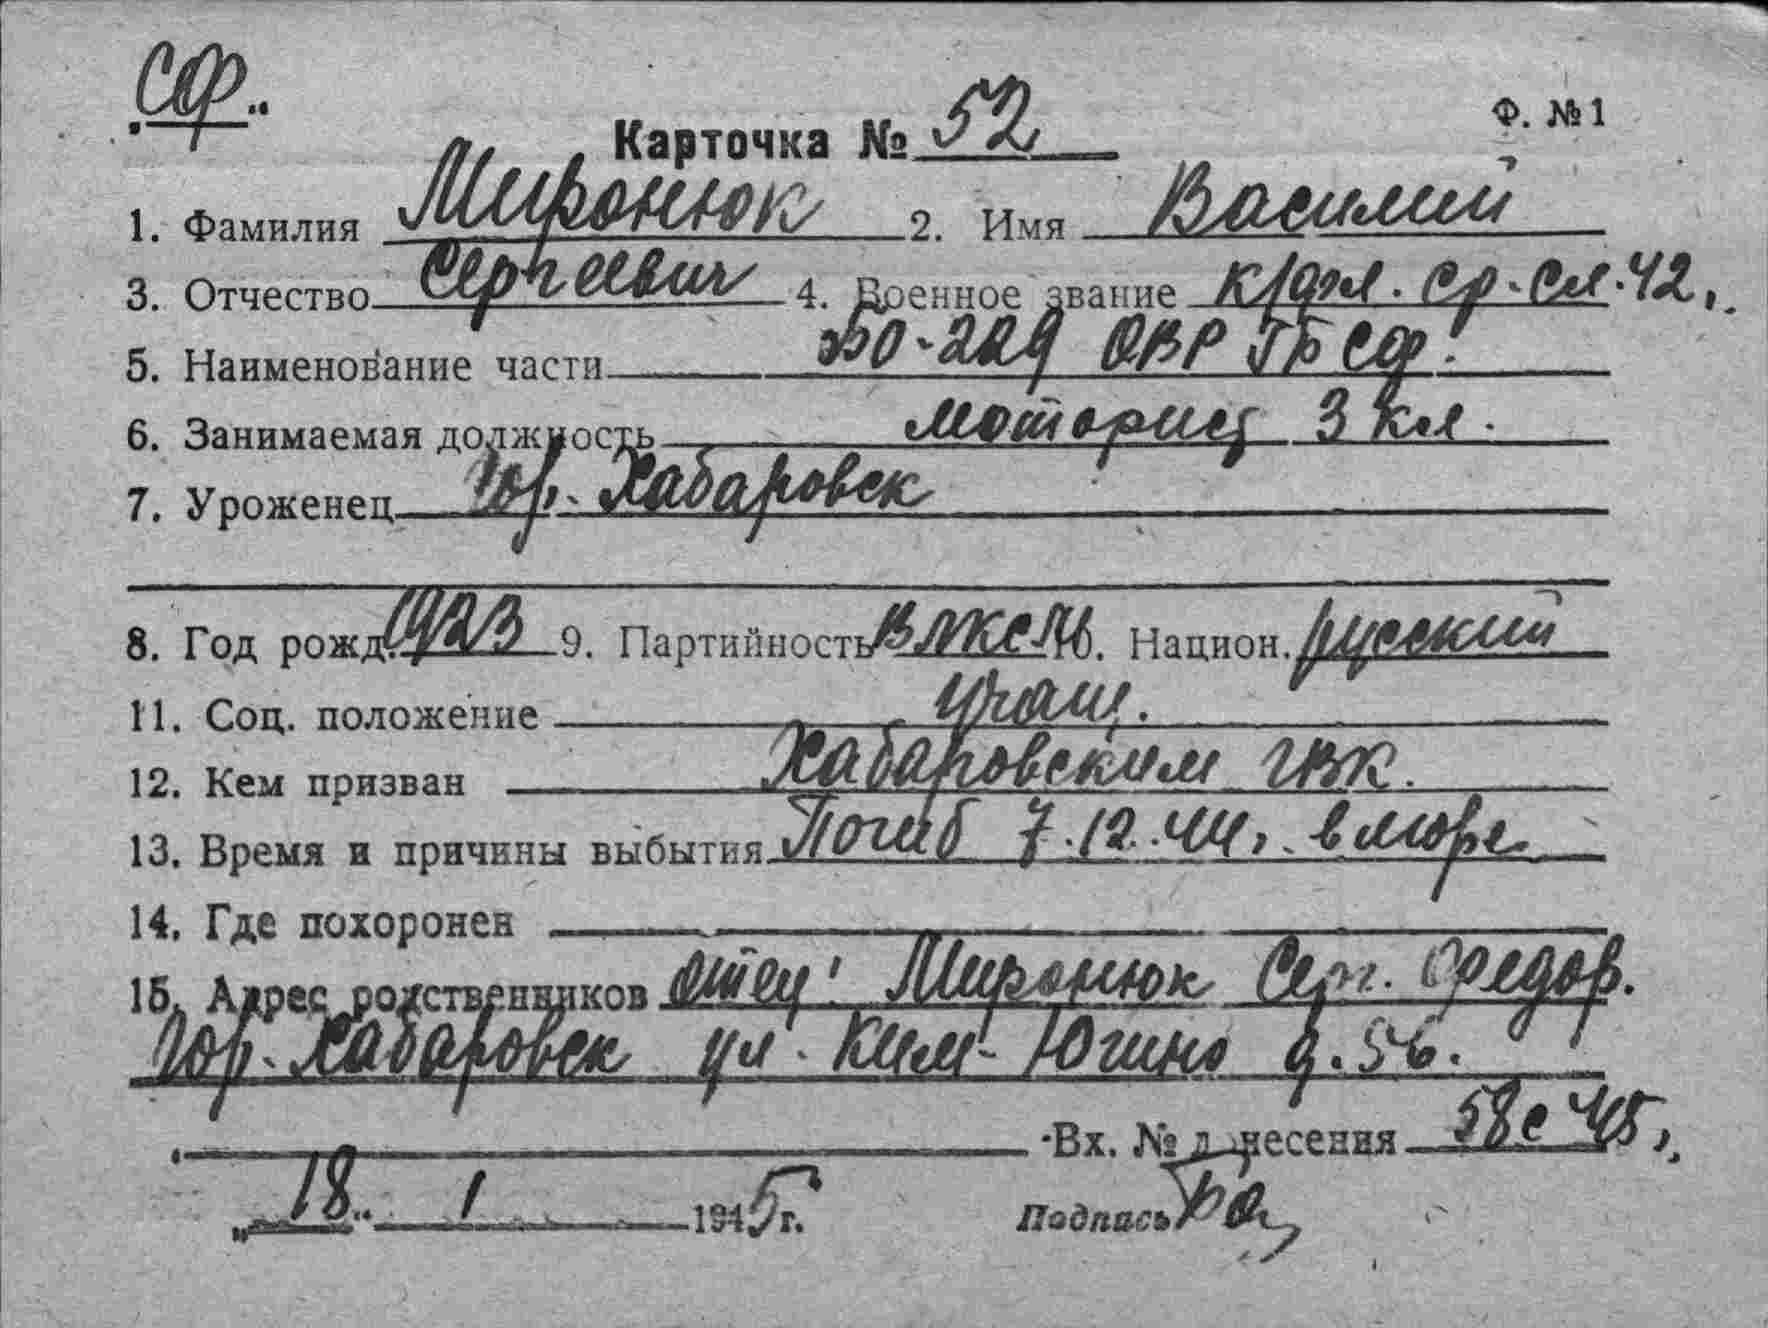 СФ.
Ф. №1
Карточка № 52
1. Фамилия Миронюк 2. Имя Василий
3. Отчество Сергеевич 4. Военное звание к/фл. ср. сл. 42 г.
5. Наименование части БО-229 ОВР ГБ СФ.
6. Занимаемая должность моторист 3 кл.
7. Уроженец Гор. Хабаровск
8. Год рожд. 1923 9. Партийность ВЛКСМ 10. Национ. русский
11. Соц. положение учащ.
12. Кем призван Хабаровским ГВК.
13. Время и причины выбытия Погиб 7.12.44 г. в море.
14. Где похоронен
15. Адрес родственников отец: Миронюк Серг. Федор.
Гор. Хабаровск ул. Ким-Югино д. 56.
Вх. № донесения 58с 45 г.
„18" 1 1945 г. Подпись